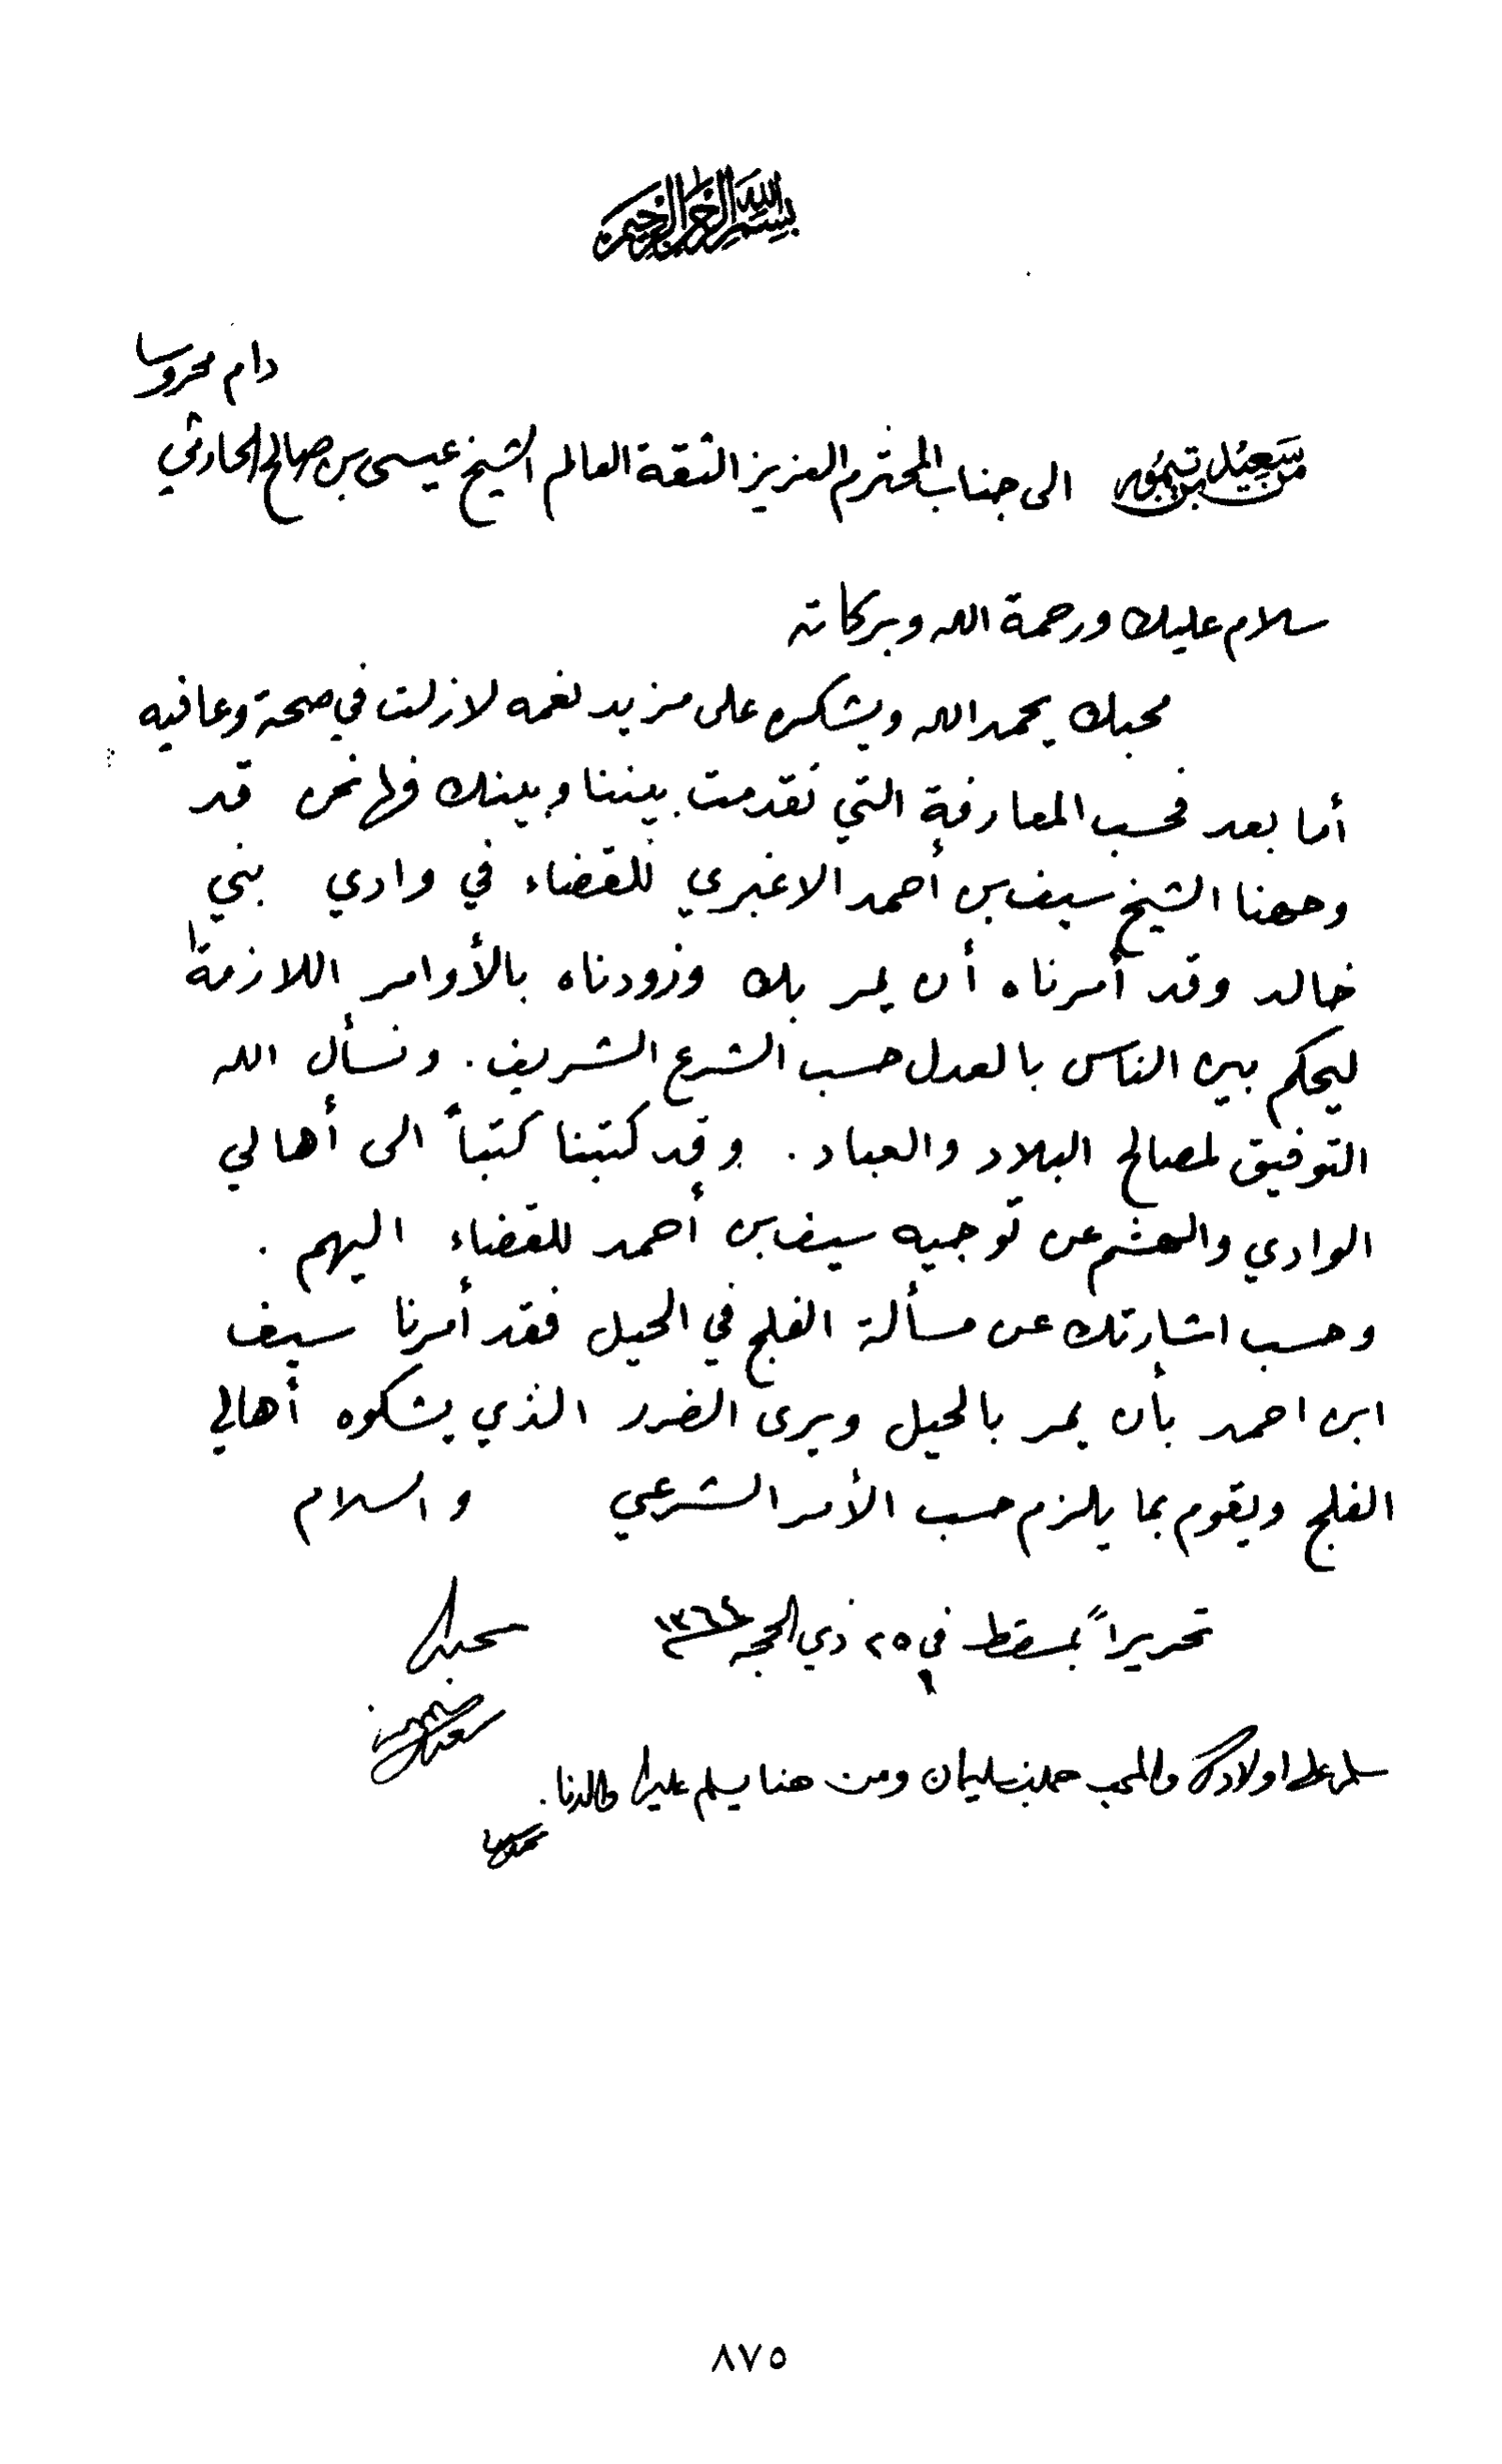 بسم الله الرحمن الرحيم
دام محروسا
من سعيد بن تيمور الى جناب المحترم العزيز الثقة العالم الشيخ عيسى بن صالح الحارثي
سلام عليك ورحمة الله وبركاته
محبك يحمد الله ويشكره على مزيد نعمه لازلت في صحة وعافيه
أما بعد فحسب المعارفة التي تقدمت بيننا وبينك فها نحن قد
وجهنا الشيخ سيف بن أحمد الاغبري للقضاء في وادي بني
خالد وقد أمرناه أن يمر بك وزودناه بالأوامر اللازمة
ليحكم بين الناس بالعدل حسب الشرع الشريف. ونسأل الله
التوفيق لمصالح البلاد والعباد. وقد كتبنا كتباً الى أهالي
الوادي والهشم عن توجيه سيف بن أحمد للقضاء اليهم.
وحسب اشارتك عن مسألة الفلج في الحيل فقد أمرنا سيف
ابن احمد بأن يمر بالحيل ويرى الضرر الذي يشكوه أهالي
الفلج ويقوم بما يلزم حسب الأمر الشرعي والسلام
تحريراً بمسقط في ٢٥ ذي الحجه ١٣٦٤
محبك
سلم على اولادك والمحب حمد بن سليمان ومن هنا يسلم عليك والدنا.
٨٧٥